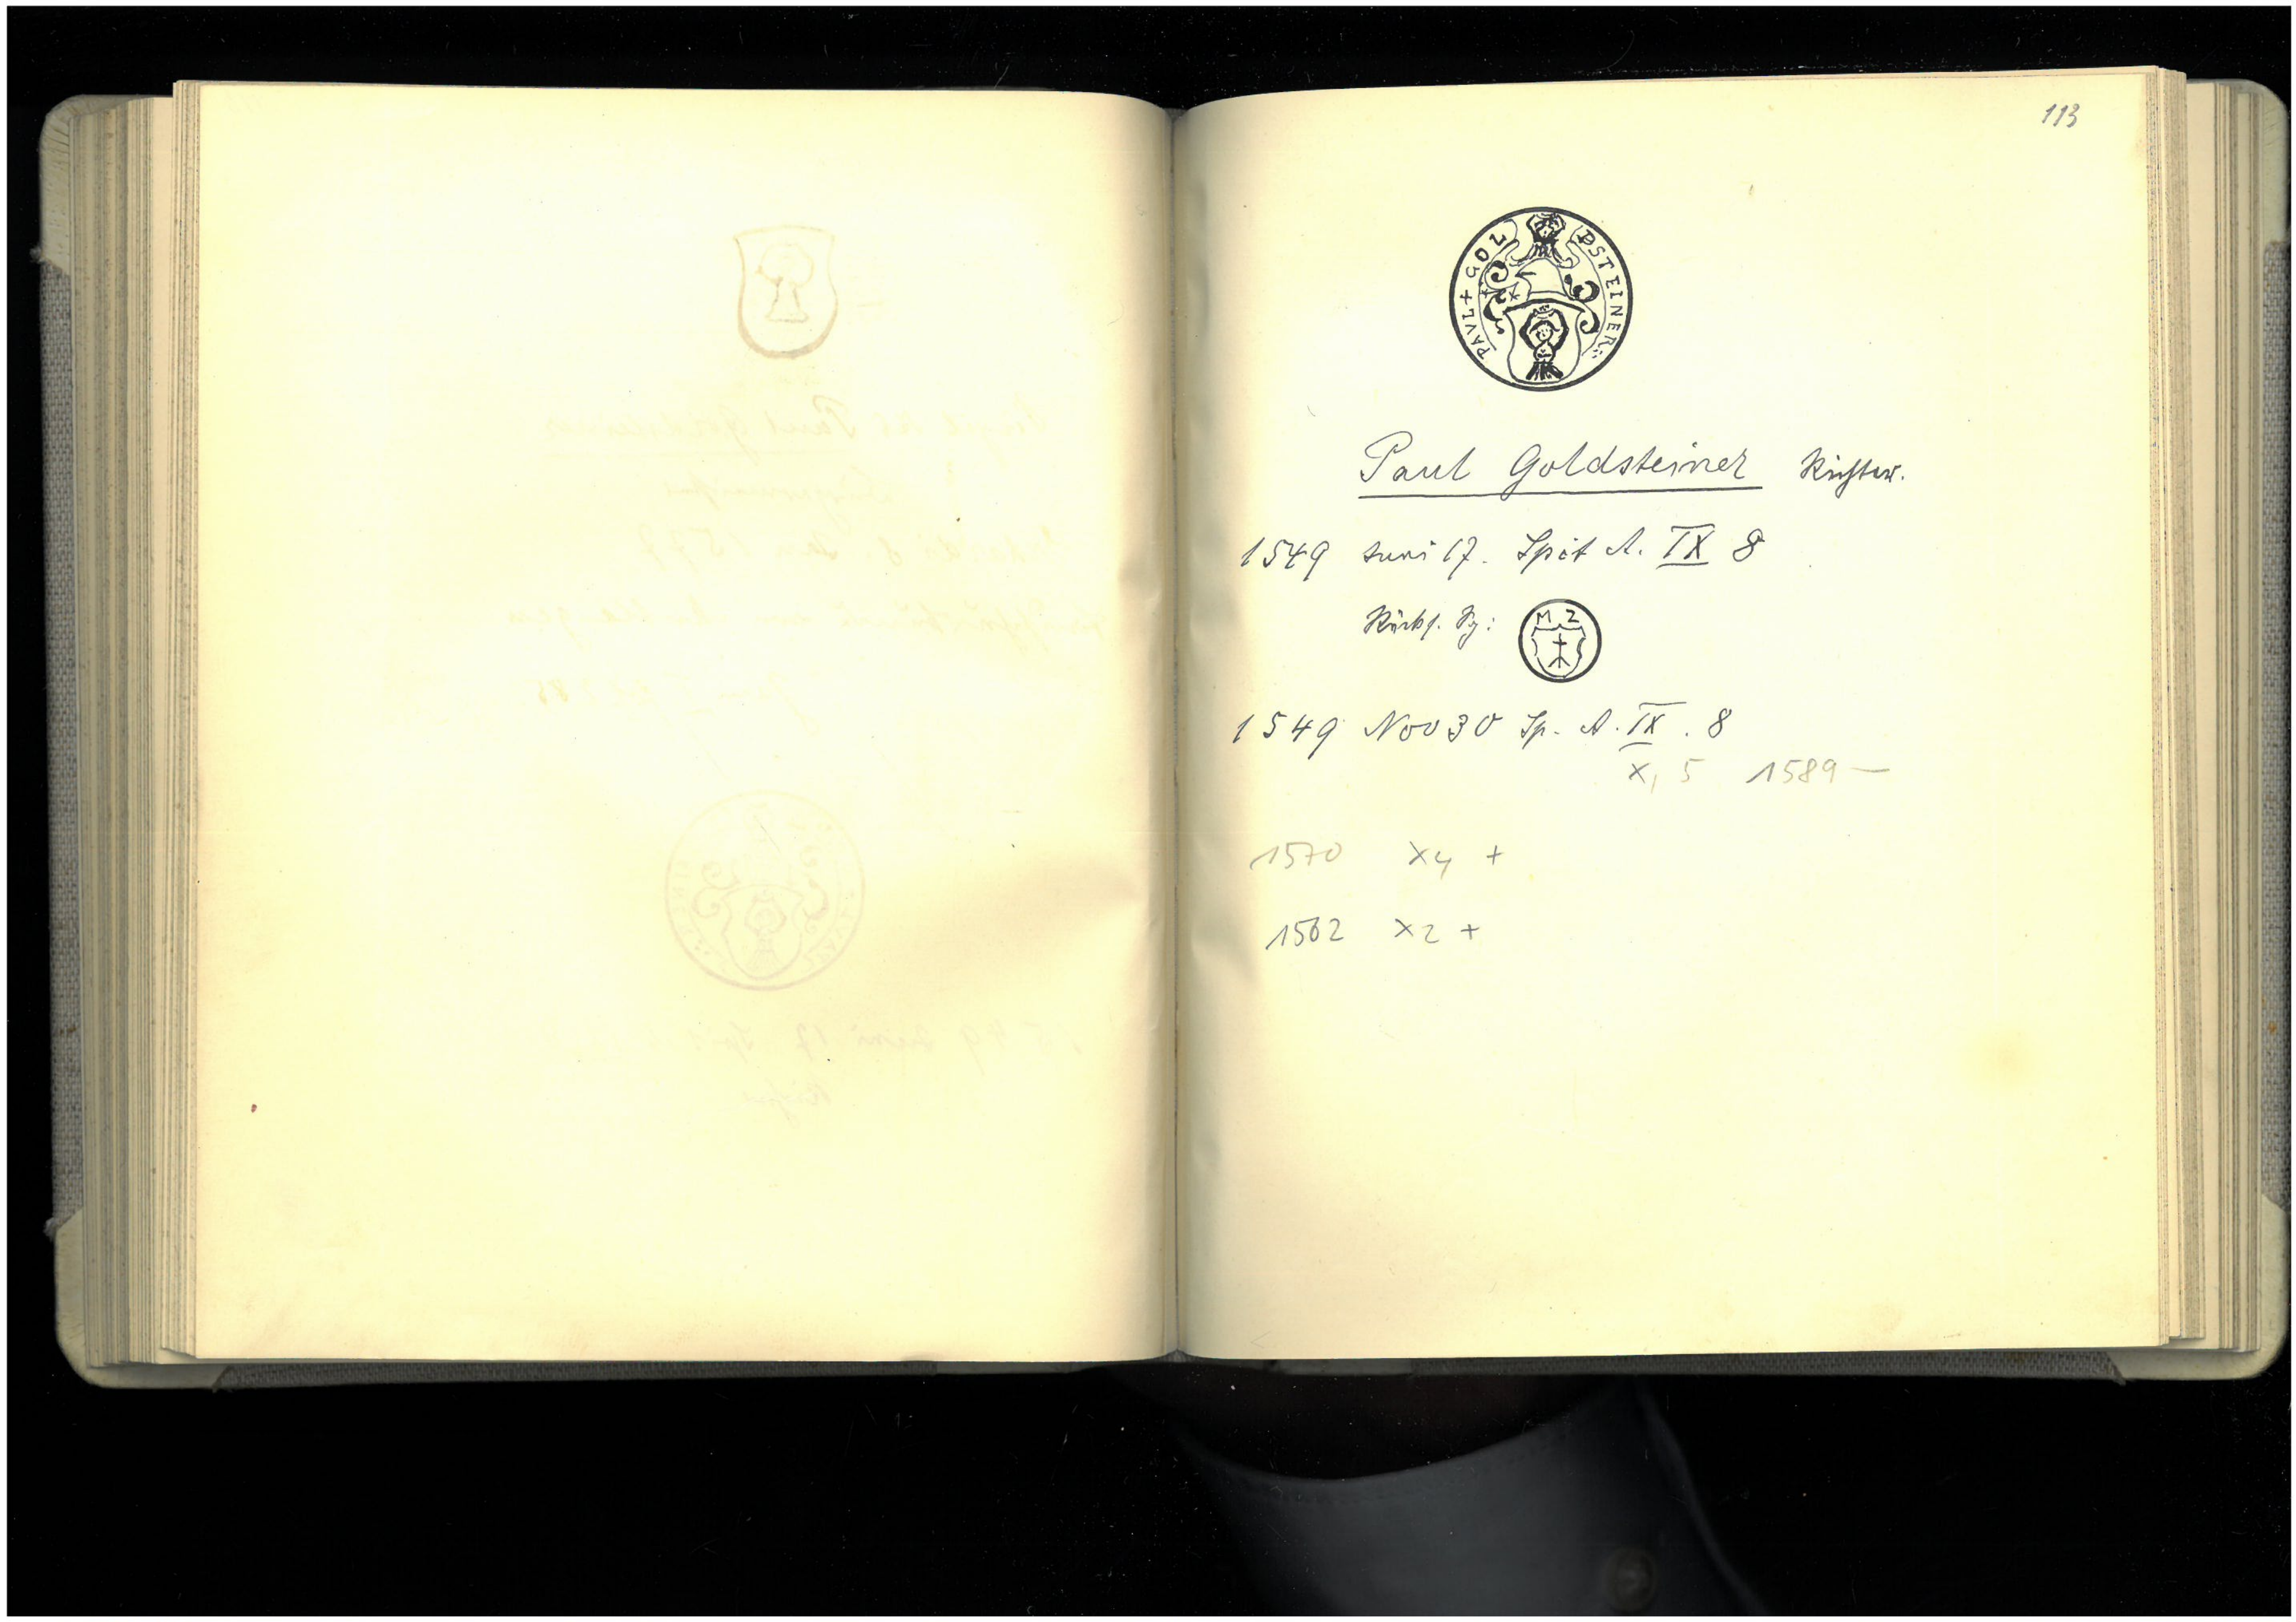 113
PAVL + GOL DSTEINER
Paul Goldsteiner Richter.
1549 Juni 17. Spit A. IX 8
Rücks. Sg:
M Z
1549 Nov 30 Sp. A. IX. 8
X, 5 1589 —
1570 X4 +
1562 X2 +